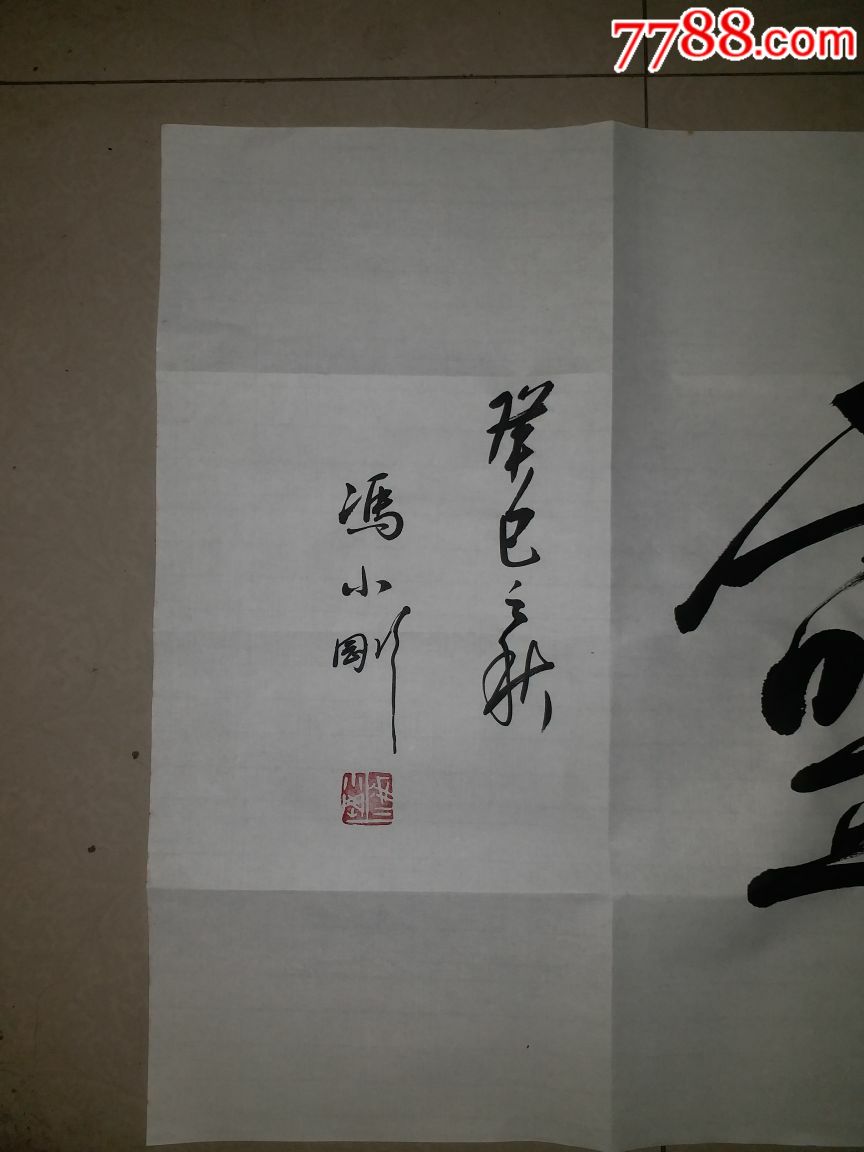 7788.com
癸巳之秋
馮小剛